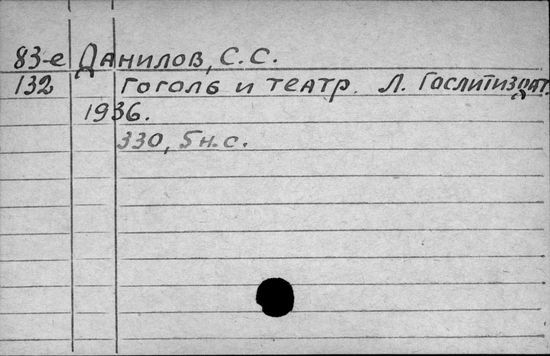 83-е Данилов, С.С.
132 Гоголь и театр. Л. Гослитиздат.
1936.
330, 5 н.с.